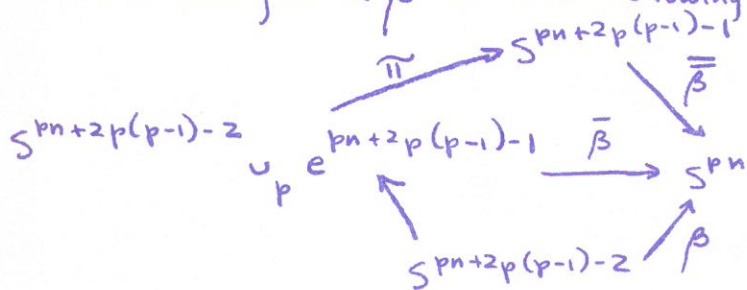 S^{pn+2p(p-1)-1}
\widetilde{π}
\bar{\bar{β}}
S^{pn+2p(p-1)-2} ∪_p e^{pn+2p(p-1)-1} \bar{β} S^{pn}
S^{pn+2p(p-1)-2} β